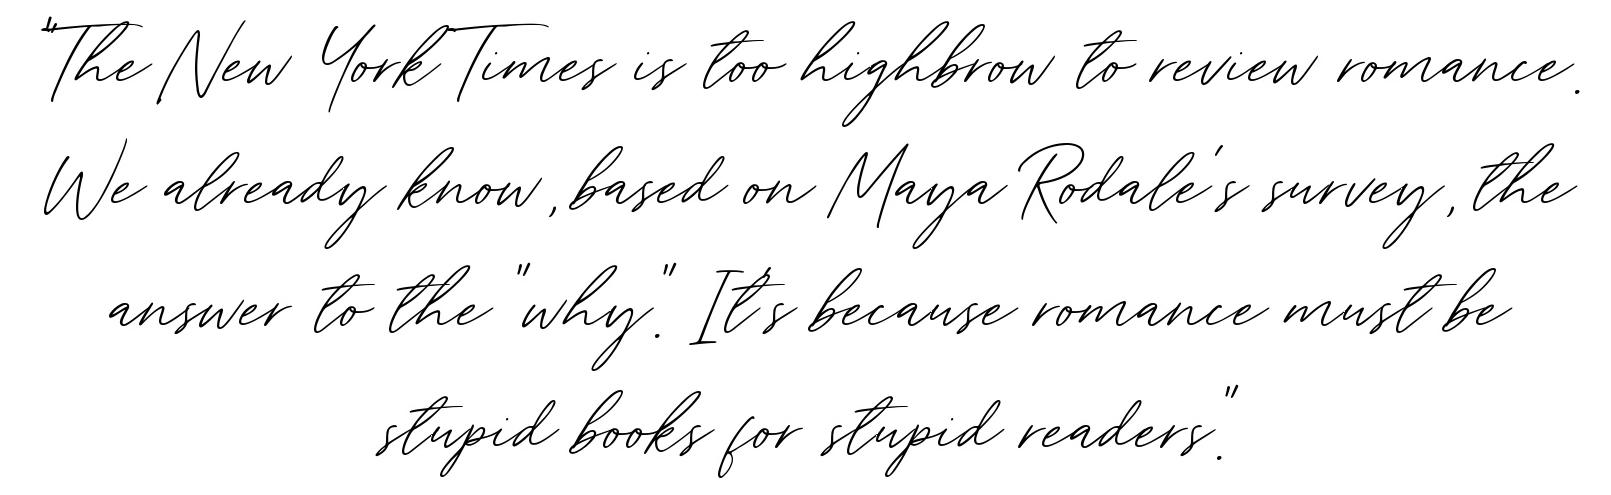 "The New York Times is too highbrow to review romance.
We already know, based on Maya Rodale's survey, the
answer to the "why". It's because romance must be
stupid books for stupid readers."